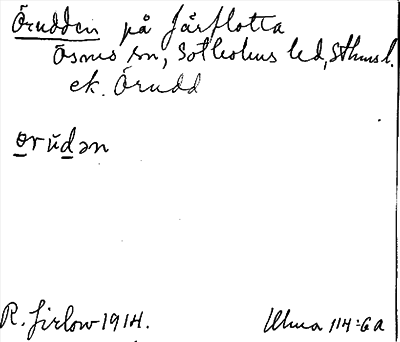 Örudden på Järflotta
Ösmo sn, Sotholms hd, Sthms l.
ek. Örudd
ørŭdən
R. Jirlow 1914.
Ulma 114:6a